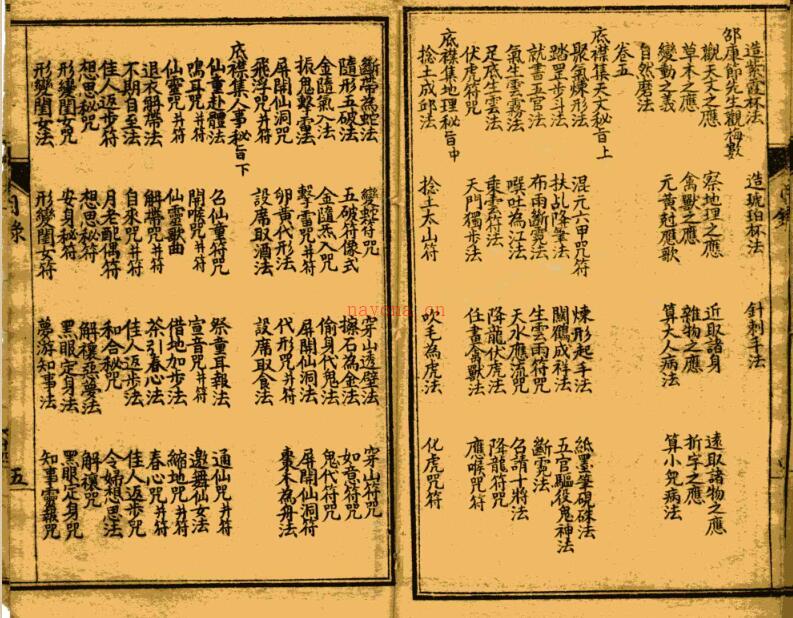 造紫霞杯法 造琥珀杯法 針刺手法
邵康節先生觀梅數
觀天文之應 察地理之應 近取諸身 遠取諸物之應
草木之應 禽獸之應 雜物之應 折字之應
變動之義 元黃尅應歌 算大人病法 算小兒病法
自然磨法
卷五
底襟集天文秘旨上
聚氣煉形法 混元六甲咒符 煉形起手法 紙墨筆硯硃法
踏罡步斗法 扶乩降筆法 關鶴成祥法 五官驅役鬼神法
就書五官法 布雨斷霓法 生雲雨符咒 斷霓法
氣生雲霧法 噀吐為江法 天水應流咒 召請十將法
足底生雲法 乘雲符法 降龍伏虎法 降龍符咒
伏虎符咒 天門獨步法 任畫禽獸法 應喉咒符
底襟集地理秘旨中
捻土成邱法 捻土太山符 吹毛為虎法 化虎咒符
斷帶為蛇法 變蛇符咒 穿山透壁法 穿山符咒
隨形五破法 五破符像式 擦石為金法 如意符咒
金隨氣入法 金隨炁入法 偷身代鬼法 鬼代符咒
振鬼擊雷法 擊雷咒并符 屏開仙洞法 屏開仙洞符
屏開仙洞咒 卵黃代形法 代形咒并符 棗木為舟法
飛浮咒并符 設席取酒法 設席取食法
底襟集人事秘旨下
仙童赴體法 召仙童符咒 祭童耳報法 通仙咒并符
鳴耳咒并符 開喉咒并符 宣音咒并符 邀舞仙女法
仙靈咒并符 仙靈歌曲 借地加步法 縮地咒并符
退衣解帶法 解帶咒并符 茶引春心法 春心咒并符
不期自至法 自來咒并符 佳人返步法 佳人返步咒
佳人返步符 月老配偶符 和合秘咒 令婦想思法
想思秘咒 想思秘符 解禳惡夢法 解禳咒
形變閨女咒 安身秘符 黑眼定身法 黑眼定身咒
形變閨女法 形變閨女符 夢游知事法 知事靈報咒
目錄
五